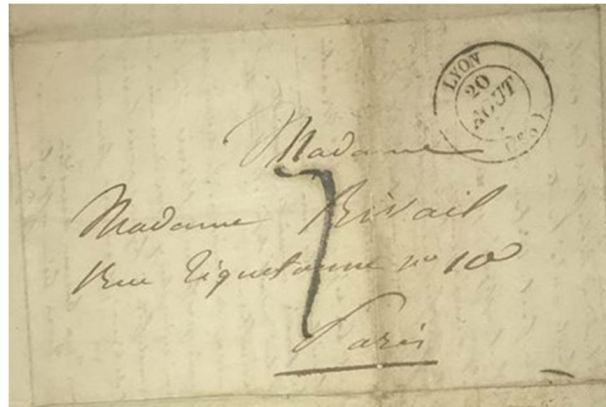 LYON
20
AOUT
(68)
Madame
7
Madame Rivail
Rue Tiquetonne nº 10
Paris